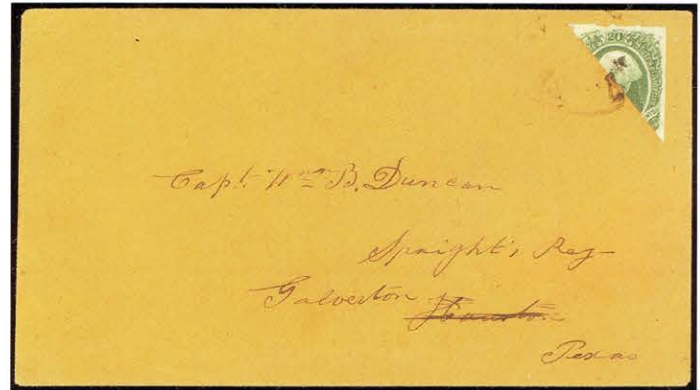 20
Capt. Wm B. Duncan
Spaight's Reg
Galveston Houston
Texas